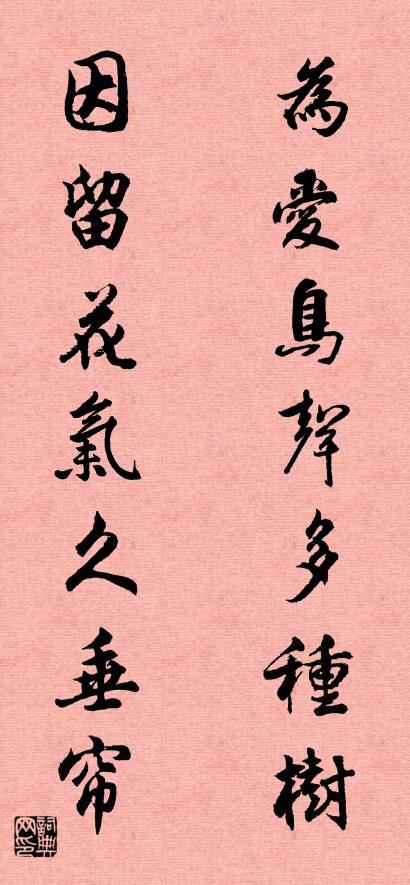 為愛鳥聲多種樹
因留花氣久垂帘
詞典網印